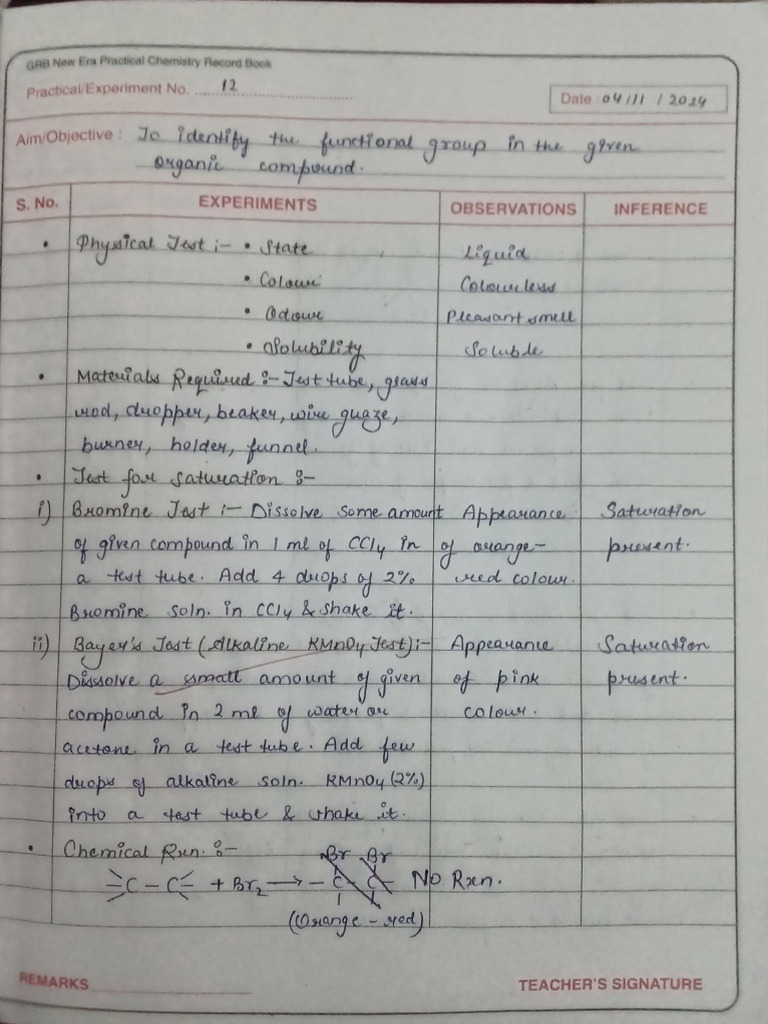 GRB New Era Practical Chemistry Record Book
Practical/Experiment No. 12
Date : 04/11/2024
Aim/Objective : To identify the functional group in the given
organic compound.
S. No. EXPERIMENTS OBSERVATIONS INFERENCE
• Physical Test :- • State Liquid
• Colour Colourless
• Odour Pleasant smell
• Solubility Soluble
• Materials Required :- Test tube, glass
rod, dropper, beaker, wire guaze,
burner, holder, funnel.
• Test for saturation :-
i) Bromine Test :- Dissolve some amount Appearance Saturation
of given compound in 1 ml of CCl4 in of orange- present.
a test tube. Add 4 drops of 2% red colour.
Bromine soln. in CCl4 & shake it.
ii) Bayer's Test (Alkaline KMnO4 Test) :- Appearance Saturation
Dissolve a small amount of given of pink present.
compound in 2 ml of water or colour.
acetone in a test tube. Add few
drops of alkaline soln. KMnO4 (2%)
into a test tube & shake it.
• Chemical Rxn. :-
Br Br
C - C + Br2 → - C - C No Rxn.
(Orange - red)
REMARKS TEACHER'S SIGNATURE